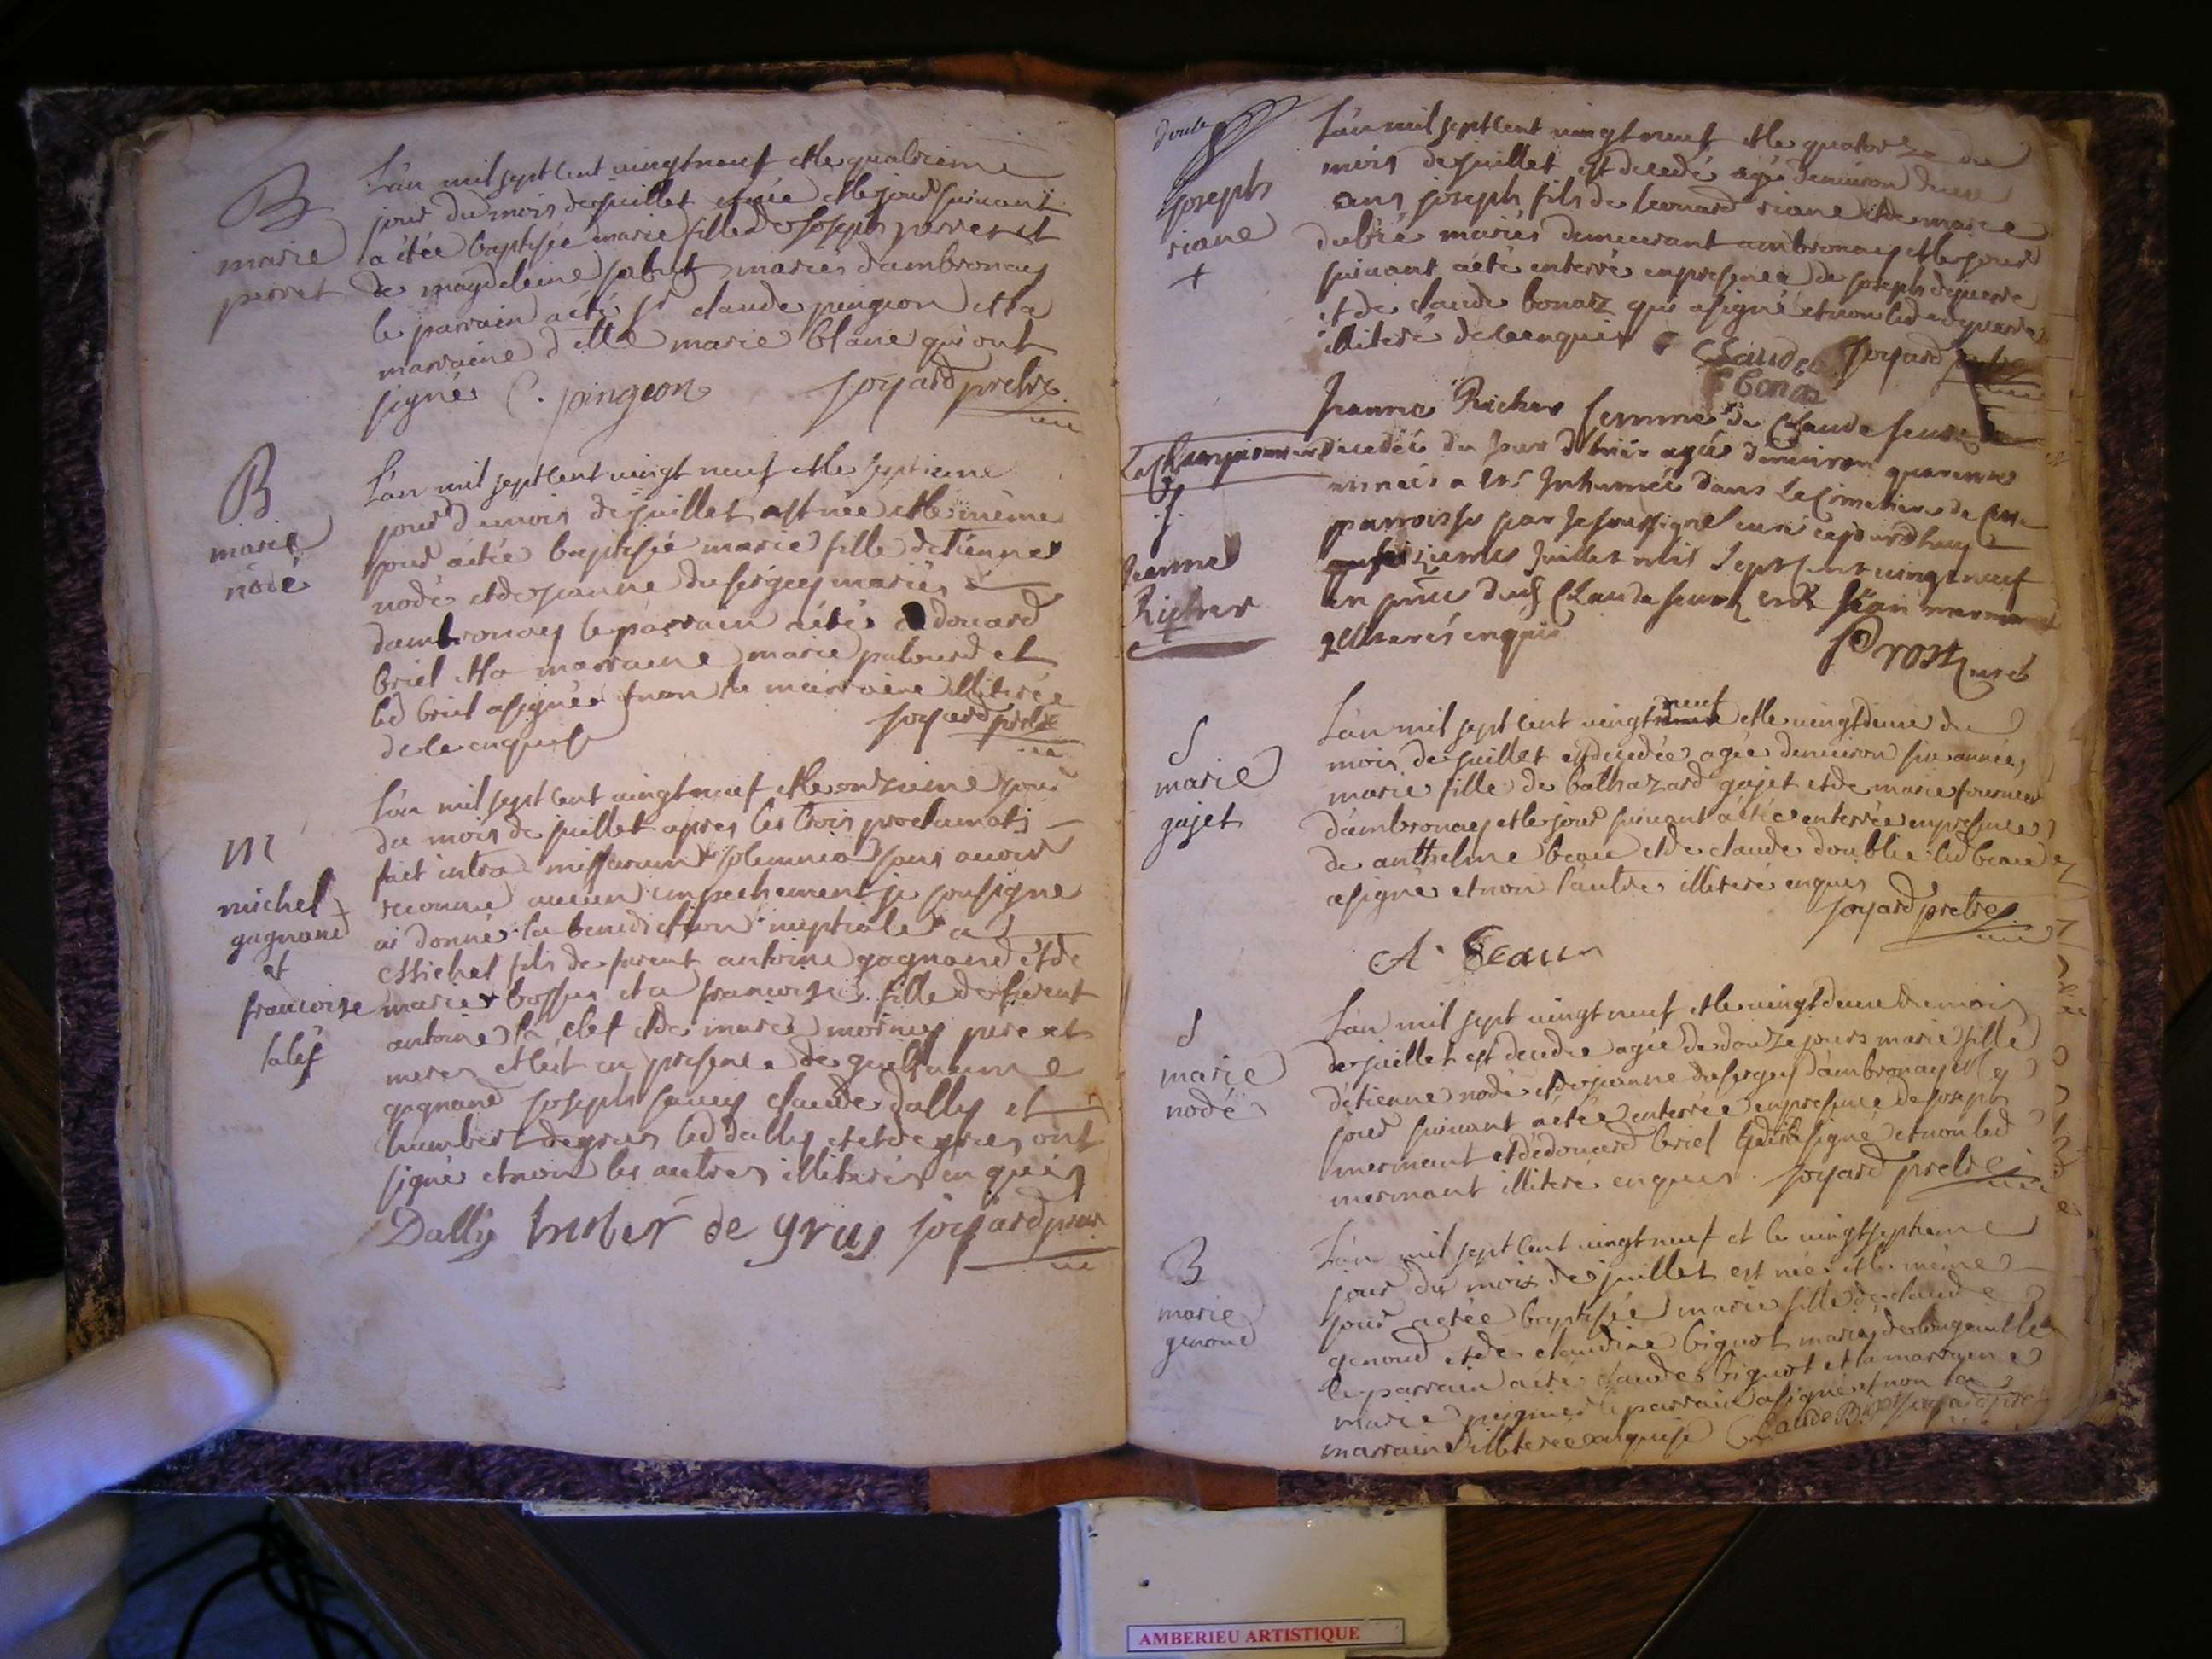 B
marie
perret
L'an mil sept cent vingt neuf et le quatrieme
jour du mois de juillet et née et le jour suivant
a étée baptisée marie fille de joseph perret et
de magdeleine jabut mariés d'ambronay
le parrain a été Sr claude pingeon et la
marraine dlle marie blanc qui ont
signé C. pingeon joyard pretre
B
marie
nodé
L'an mil sept cent vingt neuf et le septieme
jour du mois de juillet est née et le même
jour a étée baptisée marie fille d'etienne
nodé et de jeanne du sergey mariés
d'ambronay le parrain a été edouard
briel et la marraine marie palourd et
led briel a signé et non la marraine illiterée
de ce enquise joyard pretre
M
michel
gagnand
et
francoise
laclef
L'an mil sept cent vingt neuf et le onzieme jour
du mois de juillet apres les trois proclamats
fait intra missarum solemnia sans avoir
reconnu aucun empechement je sousigné
ai donné la benediction nuptiale a
Michel fils de furent antoine gagnand et de
marie bossu et a francoise fille de furent
antoine la clef et de marie mornay pere et
mere et c'est en presence de guillaume
gagnand joseph savey claude dally et
humbert degrus led dally et et degrus ont
signé et non les autres illiterés enquis
Dally humber de grus joyard pretre
joseph
riane
+
L'an mil sept cent vingt neuf et le quatorze du
mois de juillet est decedé agé d'environ deux
ans joseph fils de leonard riane et de marie
dubié mariés demeurant ambronay et le jour
suivant a été enterré en presence de joseph deguerre
et de claude bonaz qui a signé et non led deguerre
illiteré de ce enquis Claude joyard pretre
bonaz
S
Jeanne
Richer
Jeanne Richer femme de Claude
decedée du jour d'hier agée d'environ quarante
années a été Inhumée dans le Cimetiere de cette
parroisse par je soussigné curé cejourdhuy
juillet mil sept cent vingt neuf
en pnce dud Claude et de Jean mermand
illiterés enquis
Prost curé
S
marie
gajet
L'an mil sept cent vingt neuf et le vingt deux du
mois de juillet est decedée agée d'environ six années
marie fille de balthazard gajet et de marie fournier
d'ambronay et le jour suivant a étée enterrée en presence
de anthelme beau et de claude doublier led beau
a signé et non l'autre illiteré enquis
joyard pretre
A. Beau
S
marie
nodé
L'an mil sept vingt neuf et le vingt deux du mois
de juillet est decedée agée de douze jours marie fille
d'etienne nodé et de jeanne dusergey d'ambronay et le
jour suivant a étée enterrée en presence de joseph
mermant et d'edouard briel led briel signé et non led
mermant illiteré enquis joyard pretre
B
marie
genoud
L'an mil sept cent vingt neuf et le vingt septieme
jour du mois de juillet est née et le même
jour a étée baptisée marie fille de claude
genoud et de claudine bignot mariés de longeville
le parrain a été claude bignot et la marraine
marie le parrain a signé et non la
marraine illiterée enquise Claude Bignot joyard pretre
AMBERIEU ARTISTIQUE